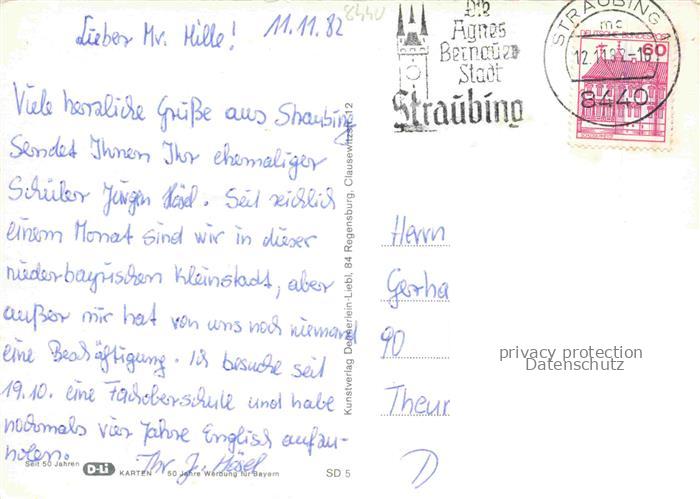 Lieber Mr. Hille! 11.11.82
8440
Viele herzliche Grüße aus Straubing
Sendet Ihnen Ihr ehemaliger
Schüler Jürgen Hösel. Seit reichlich
einem Monat sind wir in dieser
niederbayrischen Kleinstadt, aber
außer mir hat von uns noch niemand
eine Beschäftigung. Ich besuche seit
19.10. eine Fachoberschule und habe
nochmals vier Jahre Englisch aufzu-
holen. Ihr J. Hösel
Seit 50 Jahren D-Li KARTEN 50 Jahre Werbung für Bayern
SD 5
Kunstverlag Demmerlein-Liebl, 84 Regensburg, Clausewitzstr. 12
Die
Agnes
Bernauer
Stadt
Straubing
STRAUBING
mc
12.11.82-16
8440
DEUTSCHE BUNDESPOST
60
Herrn
Gerha
90
Theur
D
privacy protection
Datenschutz